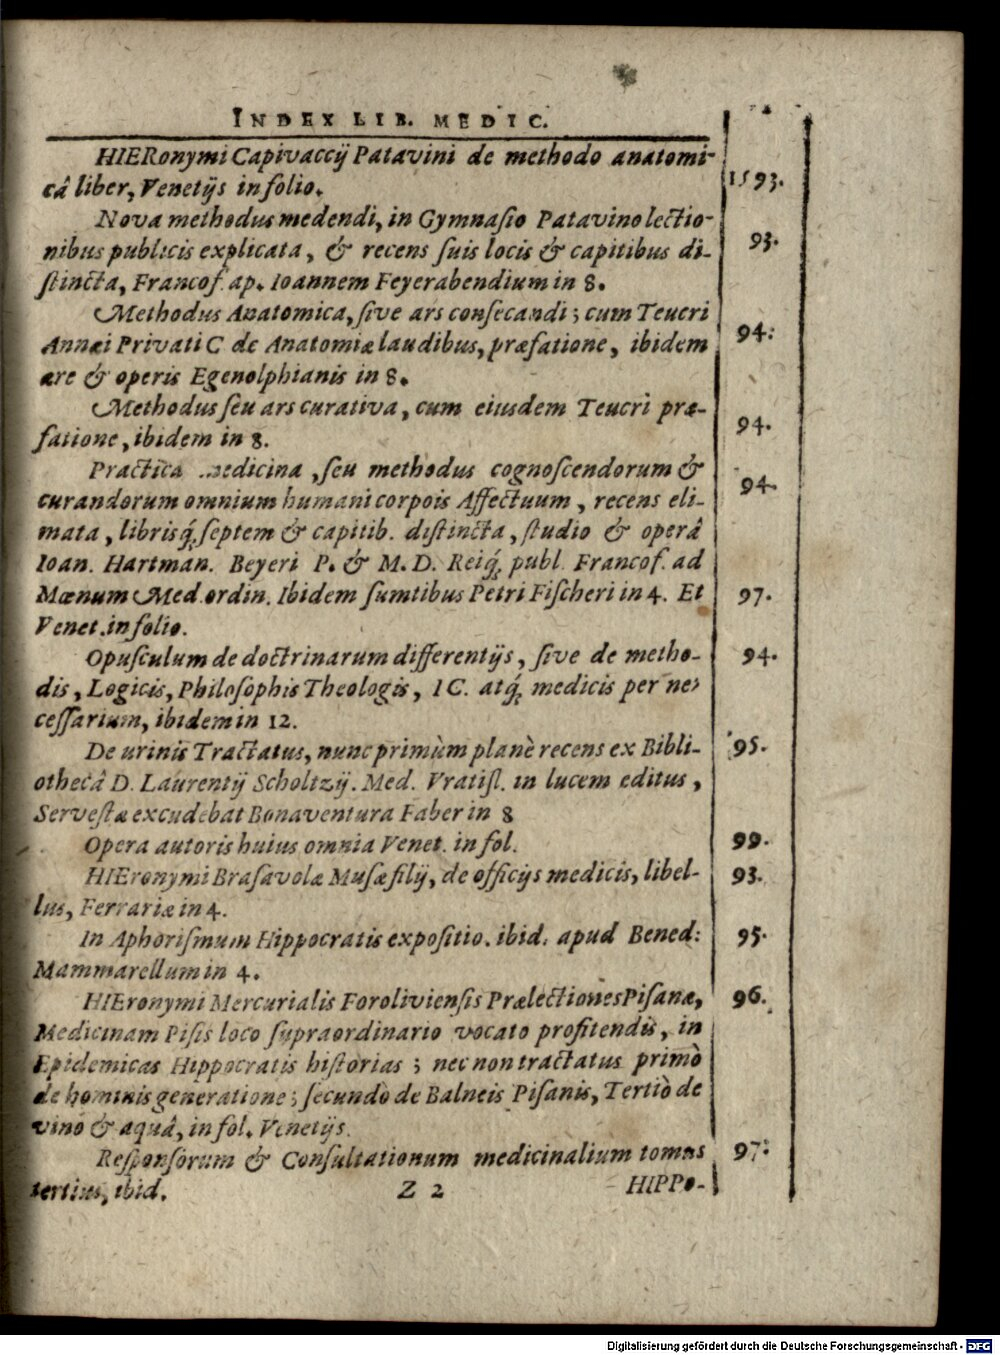 INDEX LIB. MEDIC.
HIERonymi Capivaccij Patavini de methodo anatomi-
câ liber, Venetijs in folio. 1593.
Nova methodus medendi, in Gymnaſio Patavino lectio-
nibus publicis explicata, & recens ſuis locis & capitibus di- 93.
ſtincta, Francof. ap. Ioannem Feyerabendium in 8.
Methodus Anatomica, ſive ars conſecandi; cum Teucri
Annæi Privati C de Anatomiæ laudibus, præfatione, ibidem 94:
ære & operis Egenolphianis in 8.
Methodus ſeu ars curativa, cum eiusdem Teucri præ-
fatione, ibidem in 8. 94.
Practica medicina, ſeu methodus cognoſcendorum &
curandorum omnium humani corpois Affectuum, recens eli- 94.
mata, librisq́; ſeptem & capitib. diſtincta, ſtudio & operâ
Ioan. Hartman. Beyeri P. & M. D. Reiq́; publ. Francof. ad
Mœnum Med. ordin. Ibidem ſumtibus Petri Fiſcheri in 4. Et 97.
Venet. in folio.
Opuſculum de doctrinarum differentijs, ſive de metho- 94.
dis, Logicis, Philoſophis Theologis, IC. atq́; medicis per ne-
ceſſarium, ibidem in 12.
De urinis Tractatus, nunc primùm planè recens ex Bibli- 95.
othecâ D. Laurentij Scholtzij. Med. Vratiſl. in lucem editus,
Serveſtæ excudebat Bonaventura Faber in 8
Opera autoris huius omnia Venet. in fol. 99.
HIEronymi Braſavolæ Muſæ filij, de officijs medicis, libel- 93.
lus, Ferrariæ in 4.
In Aphoriſmum Hippocratis expoſitio. ibid. apud Bened: 95.
Mammarellum in 4.
HIEronymi Mercurialis Forolivienſis Prælectiones Piſanæ, 96.
Medicinam Piſis loco ſupraordinario vocato profitendis, in
Epidemicas Hippocratis hiſtorias; nec non tractatus primò
de hominis generatione; ſecundò de Balneis Piſanis, Tertiò de
vino & aquâ, in fol. Venetijs.
Reſponſorum & Conſultationum medicinalium tomus 97:
tertius, ibid. Z 2 HIPPo-
Digitalisierung gefördert durch die Deutsche Forschungsgemeinschaft - DFG